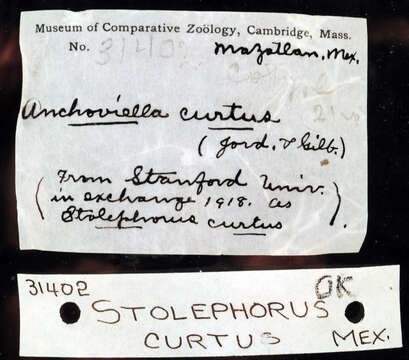 Museum of Comparative Zoölogy, Cambridge, Mass.
No. 31402 Mazatlan, Mex.
Anchoviella curtus
(Jord. & Gilb.)
(From Stanford Univ.
in exchange 1918. as
Stolephorus curtus).
31402 OK
STOLEPHORUS
CURTUS MEX.